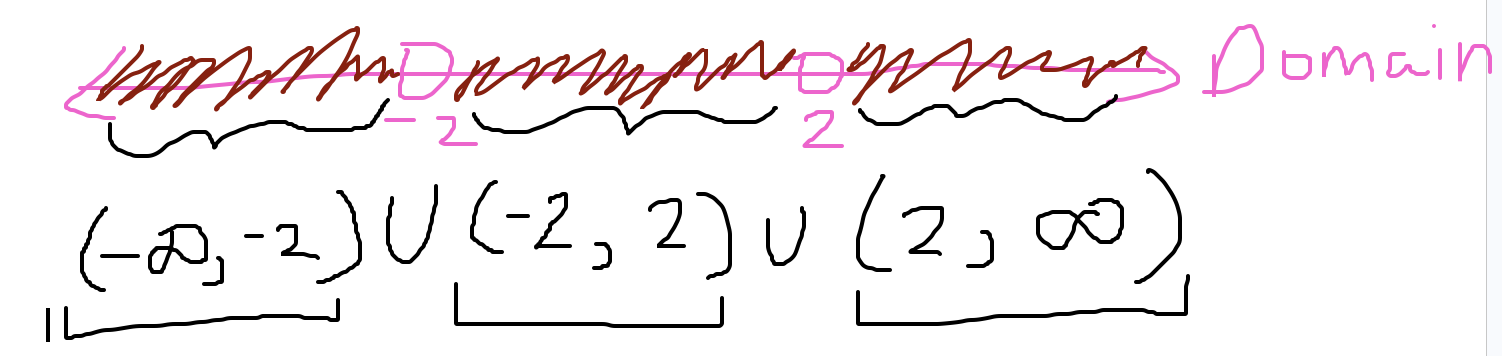 Domain
-2 2
(-∞, -2) ∪ (-2, 2) ∪ (2, ∞)